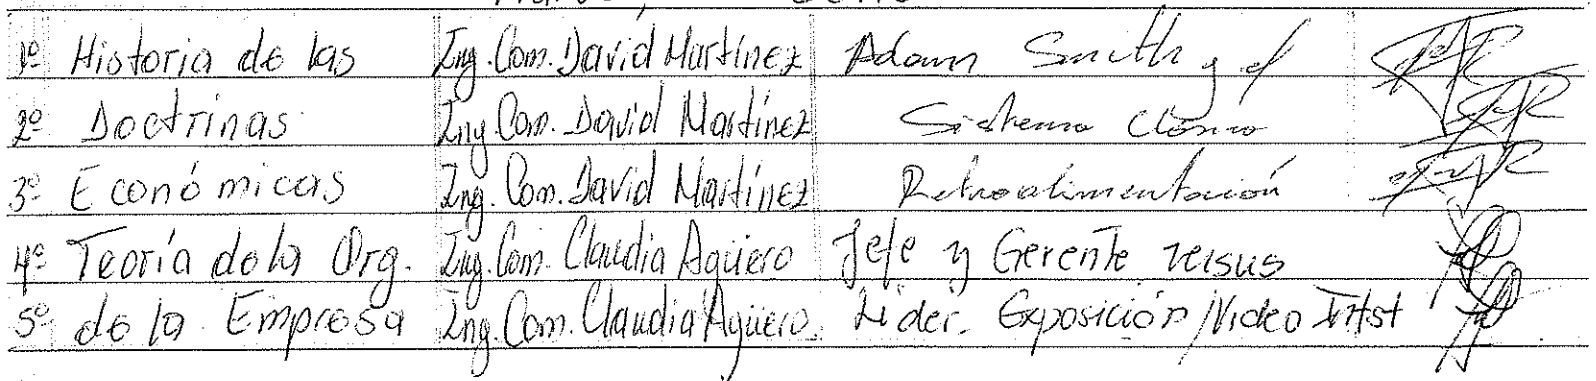 1º Historia de las Ing. Com. David Martínez Adam Smith y el
2º Doctrinas Ing Com. David Martínez Sistema Clásico
3º Económicas Ing. Com. David Martínez Retroalimentación
4º Teoría de la Org. Ing. Com. Claudia Agüero Jefe y Gerente versus
5º de la Empresa Ing. Com. Claudia Agüero. Lider. Exposición/Video